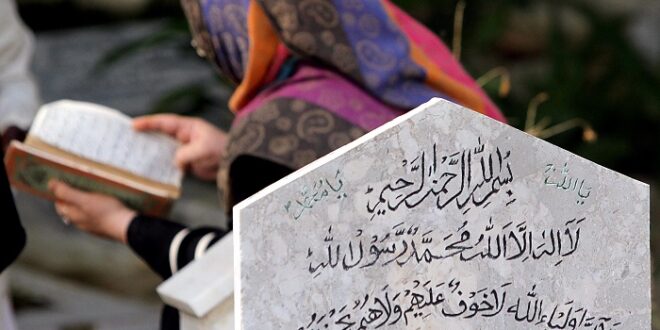 يا الله
بِسْمِ اللهِ الرَّحْمٰنِ الرَّحِيْمِ
يا محمد
لَا اِلٰهَ اِلَّا اللهُ مُحَمَّدٌ رَّسُوْلُ اللهِ
اَوْلِيَاءَ اللهِ لَا خَوْفٌ عَلَيْهِمْ وَلَا هُمْ